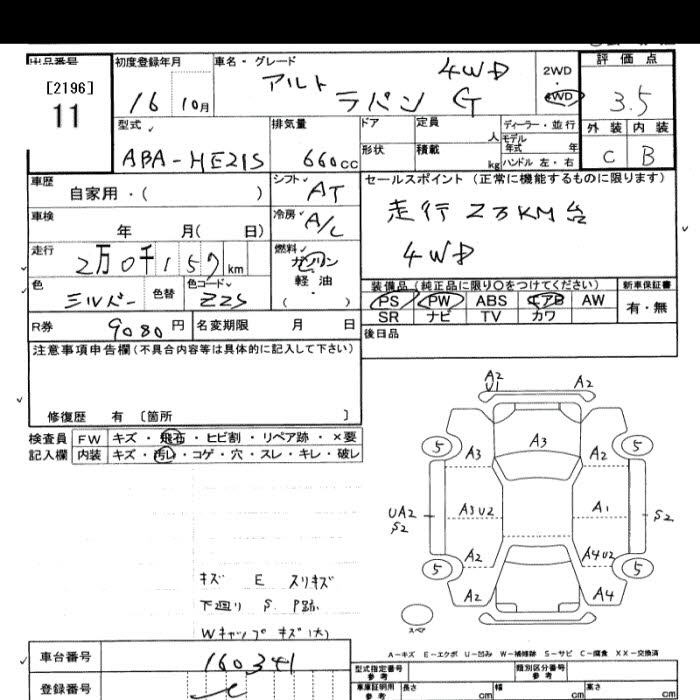 出品番号 初度登録年月 車名・グレード 評価点
[2196]
11
16 10月 アルト ラパン G 4WD 2WD 4WD 3.5
外装 内装
C B
型式 排気量 ドア 定員 人 ディーラー・並行
ABA-HE21S 660cc 形状 積載 kg モデル年式 年
ハンドル 左・右
車歴 シフト セールスポイント(正常に機能するものに限ります)
自家用・( ) AT
走行 2万KM台
4WD
車検 年 月( 日) 冷房 A/C
走行 2万0千157km 燃料 ガソリン
軽油
( )
色 シルバー 色替 色コード ZZS
装備品(純正品に限り○をつけてください) 新車保証書
PS PW ABS エアB AW 有・無
SR ナビ TV カワ
R券 9080円 名変期限 月 日 後日品
注意事項申告欄(不具合内容等は具体的に記入して下さい)
修復歴 有 〔箇所 〕
検査員 FW キズ・飛石・ヒビ割・リペア跡・×要
記入欄 内装 キズ・汚レ・コゲ・穴・スレ・キレ・破レ
A2
U1
A2
5 A3 A3 A2 5
UA2
S2
A3U2 A1 S2
5 A2 A4U2 5
A2 A4
スペア
キズ E スリキズ
下廻り S P跡
Wキャップキズ(大)
A-キズ E-エクボ U-凹み W-補修跡 S-サビ C-腐食 XX-交換済
車台番号 160341
登録番号
型式指定番号 参考 類別区分番号 参考
車庫証明用 参考 長さ cm 幅 cm 高さ cm